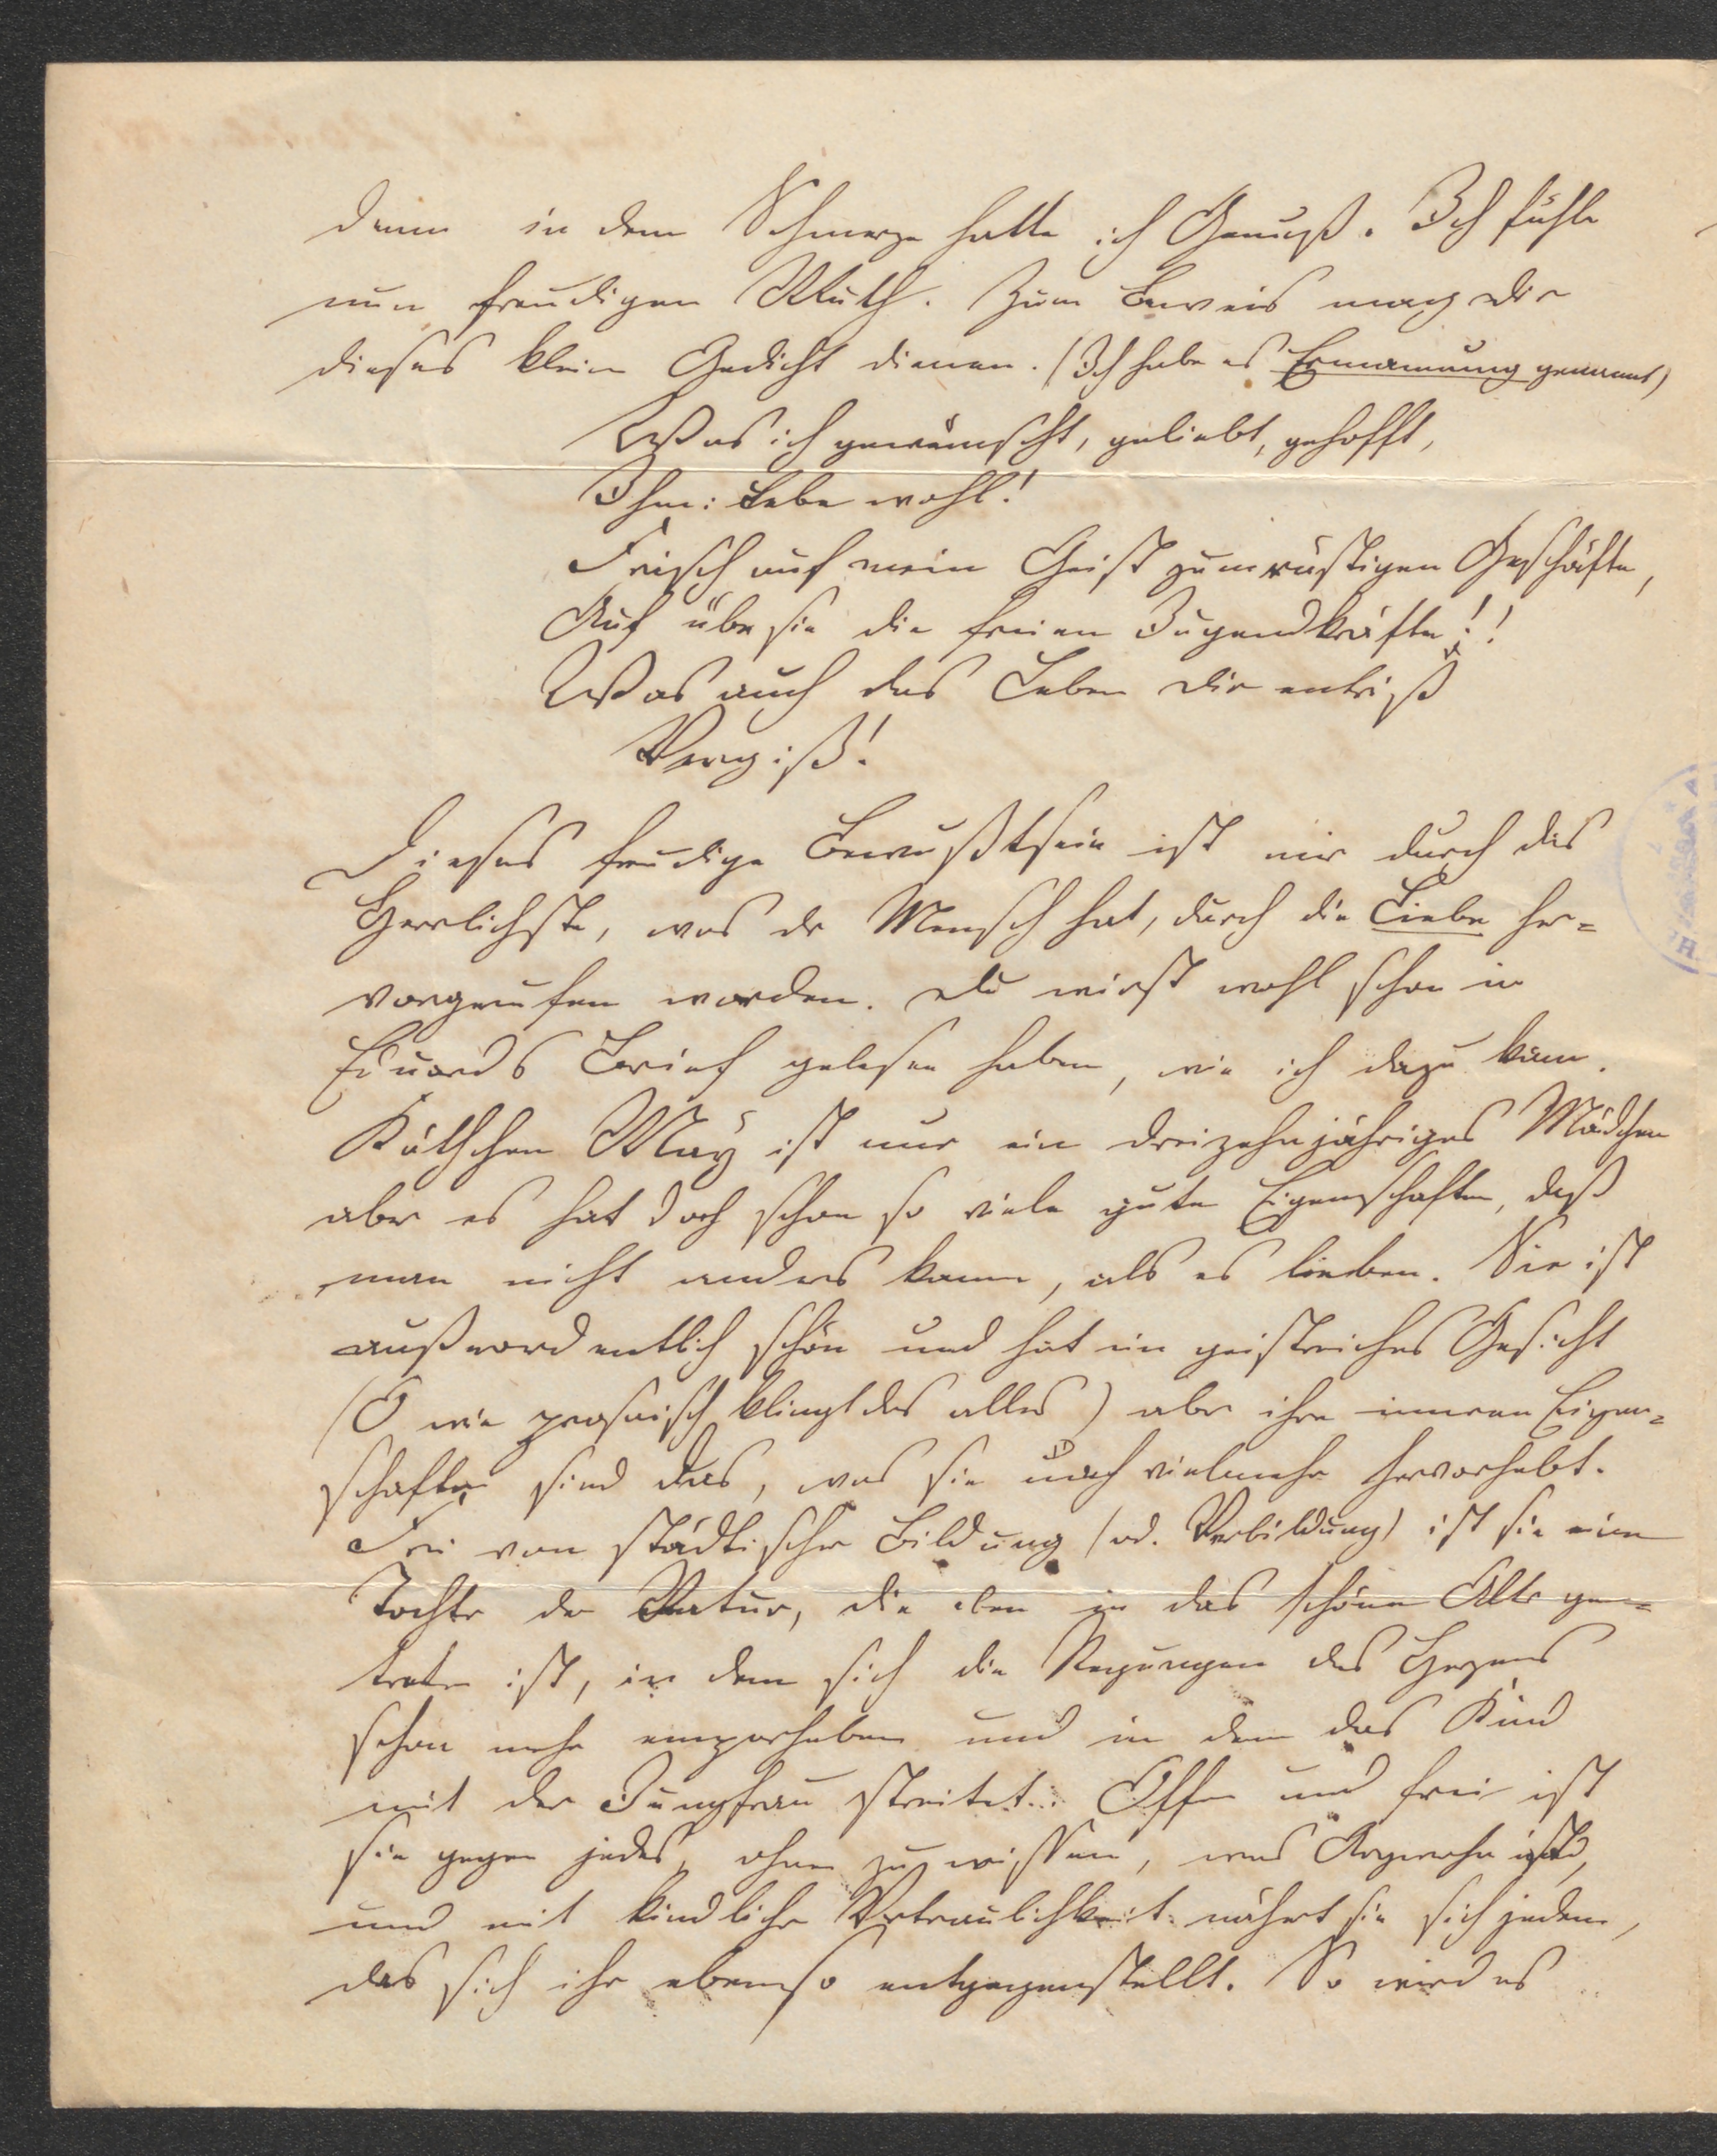 denn in dem Schmerze hatte ich Genuß. Ich fühle
nun freudigen Muth. Zum Beweis mag dir
dieses kleine Gedicht dienen. (Ich habe es Ermannung genannt)
Was ich gewünscht, geliebt, gehofft,
Ihm: Lebe wohl!
Frisch auf mein Geist zum rüstigen Geschäfte,
Auf übe sie die freien Jugendkräfte!!
Was auch das Leben dir entriß
Vergiß!
Dieses freudige Bewußtsein ist mir durch das
Herrlichste, was der Mensch hat, durch die Liebe her=
vorgerufen worden. Du wirst wohl schon in
Eduards Brief gelesen haben, wie ich dazu kam.
Käthchen May ist nur ein dreizehnjähriges Mädchen
aber es hat doch schon so viele gute Eigenschaften, daß
man nicht anders kann, als es lieben. Sie ist
außerordentlich schön und hat ein geistreiches Gesicht
(O wie prosaisch klingt das alles) aber ihre inneren Eigen=
schaften sind das, was sie noch vielmehr hervorhebt.
Frei von städtischer Bildung (od. Verbildung) ist sie eine
Tochter der Natur, die eben in das schöne Alter ge=
treten ist, in dem sich die Regungen des Herzens
schon mehr emporheben und in dem das Kind
mit der Jungfrau streitet. Offen und frei ist
sie gegen jedes, ohne zu wissen, was Argwohn ist,
und mit kindlicher Vertraulichkeit nähert sie sich jedem,
das sich ihr ebenso entgegenstellt. So wird es